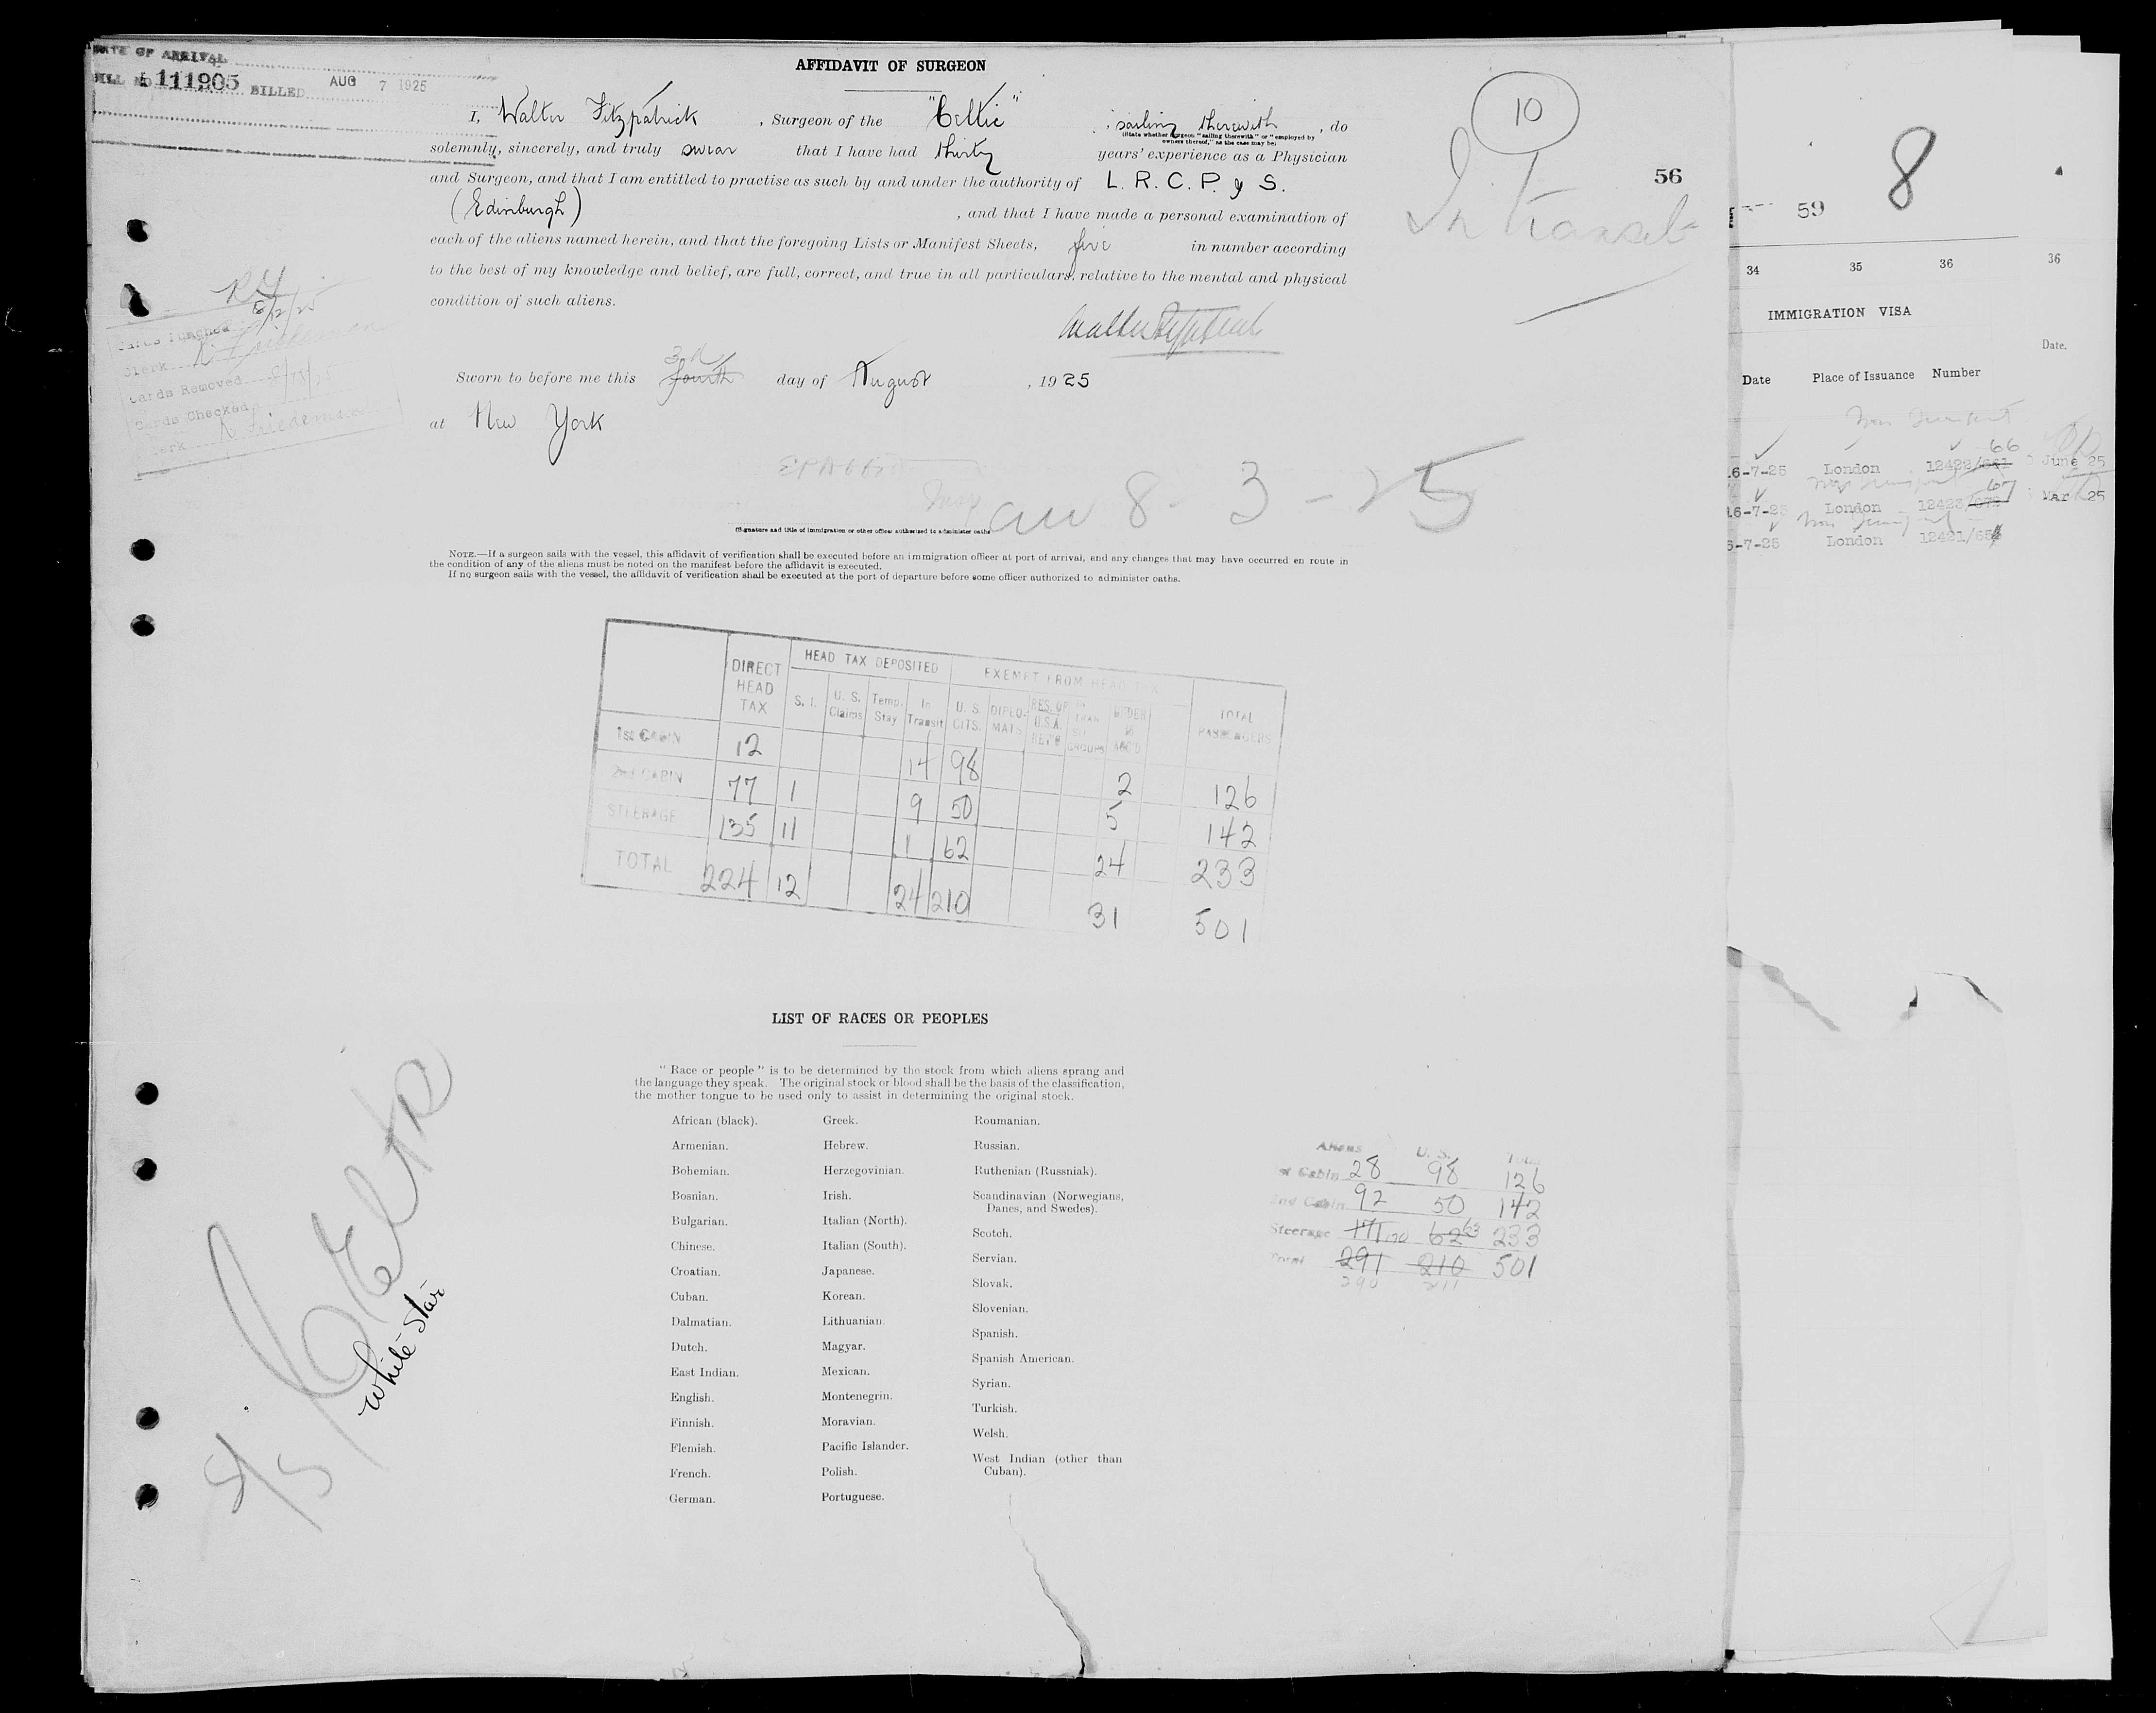 DATE OF ARRIVAL
BILL NO 111905 BILLED AUG 7 1925
AFFIDAVIT OF SURGEON
10
In Transit
56
I, Walter Fitzpatrick, Surgeon of the "Celtic", sailing therewith, do
(State whether surgeon "sailing therewith" or "employed by
owners thereof," as the case may be)
solemnly, sincerely, and truly swear that I have had thirty years' experience as a Physician
and Surgeon, and that I am entitled to practise as such by and under the authority of L. R. C. P. & S.
(Edinburgh), and that I have made a personal examination of
each of the aliens named herein, and that the foregoing Lists or Manifest Sheets, five in number according
to the best of my knowledge and belief, are full, correct, and true in all particulars, relative to the mental and physical
condition of such aliens.
Walter Fitzpatrick
3rd
Sworn to before me this fourth day of August, 1925
at New York
Cards Punched
Clerk
Cards Removed
Cards Checked
Clerk
8-3-25
(Signature and title of immigration or other officer authorized to administer oaths
NOTE.—If a surgeon sails with the vessel, this affidavit of verification shall be executed before an immigration officer at port of arrival, and any changes that may have occurred en route in
the condition of any of the aliens must be noted on the manifest before the affidavit is executed.
If no surgeon sails with the vessel, the affidavit of verification shall be executed at the port of departure before some officer authorized to administer oaths.
DIRECT HEAD TAX HEAD TAX DEPOSITED EXEMPT FROM HEAD TAX TOTAL PASSENGERS
S. I. U. S. Claims Temp. Stay In Transit U. S. CITS. DIPLO-MATS RES. OF U.S.A. RET'G GROUPS UNDER 16 ACC'D
1st CABIN 12 14 98 2 126
2nd CABIN 77 1 9 50 5 142
STEERAGE 135 11 1 62 24 233
TOTAL 224 12 24 210 31 501
LIST OF RACES OR PEOPLES
"Race or people" is to be determined by the stock from which aliens sprang and
the language they speak. The original stock or blood shall be the basis of the classification,
the mother tongue to be used only to assist in determining the original stock.
African (black).
Armenian.
Bohemian.
Bosnian.
Bulgarian.
Chinese.
Croatian.
Cuban.
Dalmatian.
Dutch.
East Indian.
English.
Finnish.
Flemish.
French.
German.
Greek.
Hebrew.
Herzegovinian.
Irish.
Italian (North).
Italian (South).
Japanese.
Korean.
Lithuanian
Magyar.
Mexican.
Montenegrin.
Moravian.
Pacific Islander.
Polish.
Portuguese.
Roumanian.
Russian.
Ruthenian (Russniak).
Scandinavian (Norwegians,
Danes, and Swedes).
Scotch.
Servian.
Slovak.
Slovenian.
Spanish.
Spanish American.
Syrian.
Turkish.
Welsh.
West Indian (other than
Cuban).
Aliens U. S. Total
1st Cabin 28 98 126
2nd Cabin 92 50 142
Steerage 171 170 62 63 233
Total 291 210 501
290 211
S/S Celtic
White Star
59
8
34 35 36 36
IMMIGRATION VISA
Date.
Date Place of Issuance Number
66
16-7-25 London 12422/ June 25
67
16-7-25 London 12423/ Mar 25
6-7-25 London 12421/65